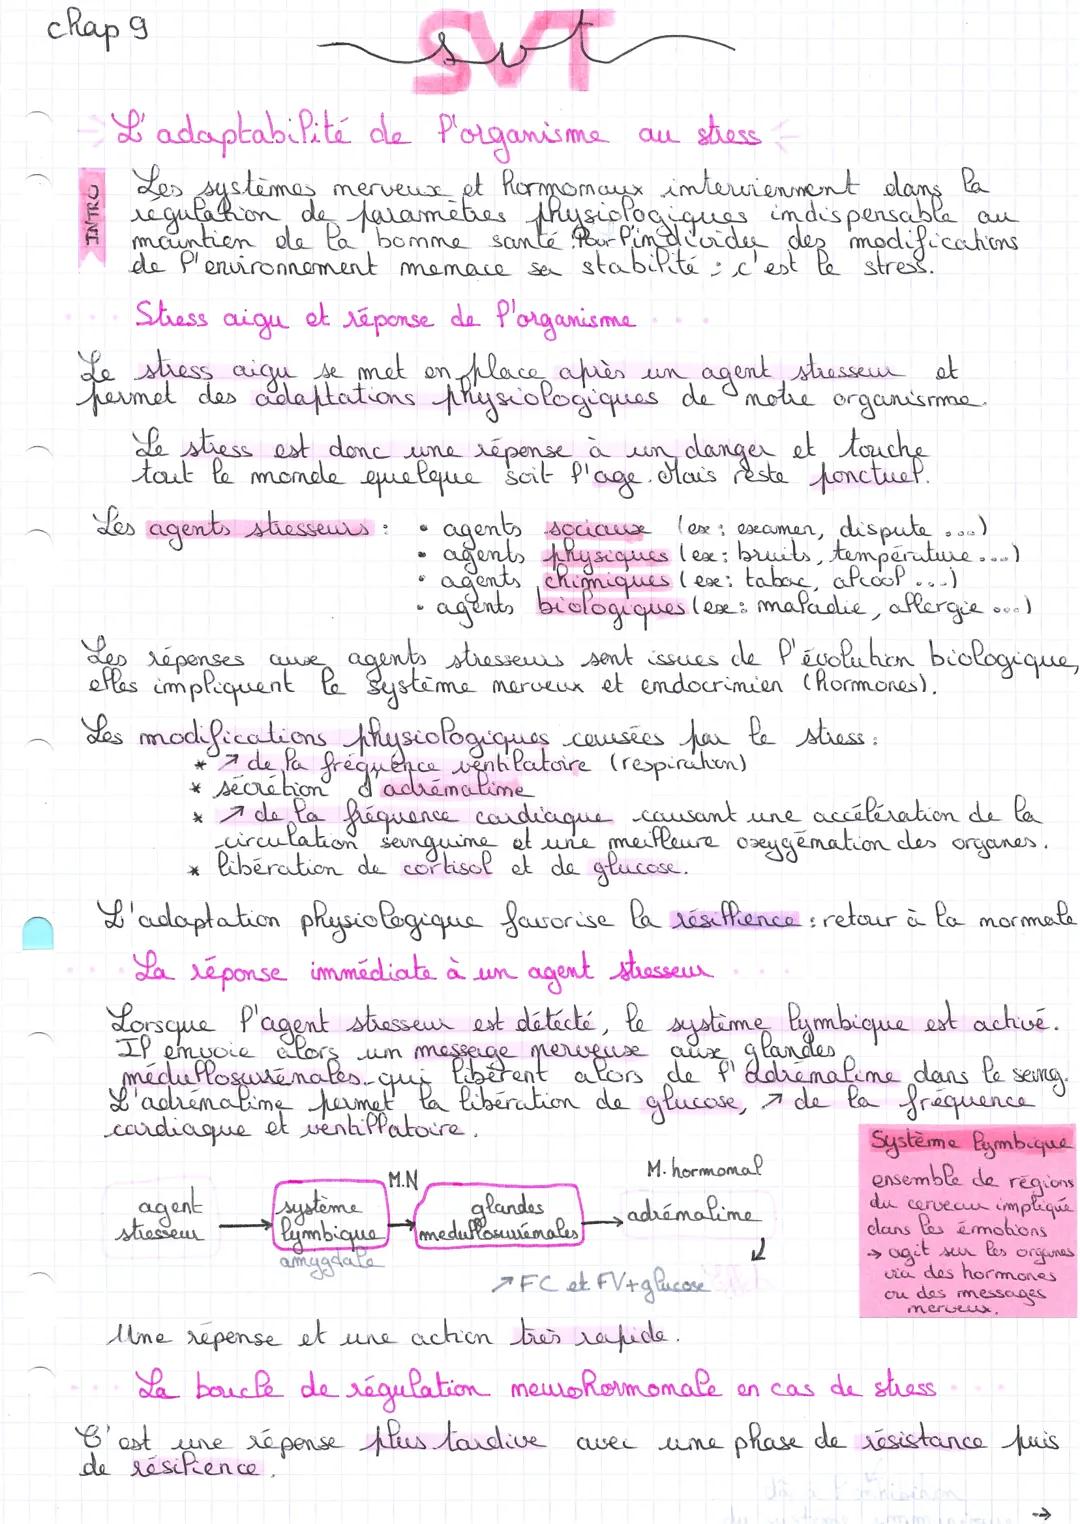 chap 9
SVT
svt
L'adaptabilité de l'organisme au stress
INTRO
Les systèmes nerveux et hormonaux interviennent dans la
régulation de paramètres physiologiques indispensable au
maintien de la bonne santé. Pour l'individu des modifications
de l'environnement menace sa stabilité : c'est le stress.
Stress aigu et réponse de l'organisme
Le stress aigu se met en place après un agent stresseur et
permet des adaptations physiologiques de notre organisme.
Le stress est donc une réponse à un danger et touche
tout le monde quelque soit l'age. Mais reste ponctuel.
Les agents stresseurs : • agents sociaux (ex : examen, dispute ...)
• agents physiques (ex : bruits, température ...)
• agents chimiques (ex : tabac, alcool ...)
• agents biologiques (ex : maladie, allergie ...)
Les réponses aux agents stresseurs sont issues de l'évolution biologique,
elles impliquent le système nerveux et endocrinien (hormones).
Les modifications physiologiques causées par le stress :
* ↗ de la fréquence ventilatoire (respiration)
* sécrétion d'adrénaline
* ↗ de la fréquence cardiaque causant une accélération de la
circulation sanguine et une meilleure oxygénation des organes.
* libération de cortisol et de glucose.
L'adaptation physiologique favorise la résillience : retour à la normale
La réponse immédiate à un agent stresseur
Lorsque l'agent stresseur est détécté, le système lymbique est activé.
Il envoie alors un message nerveux aux glandes
médullosurénales qui libèrent alors de l'adrénaline dans le sang.
L'adrénaline permet la libération de glucose, ↗ de la fréquence
cardiaque et ventillatoire.
Système lymbique
ensemble de régions
du cerveau impliqué
dans les émotions
→ agit sur les organes
via des hormones
ou des messages
nerveux.
M.N
M. hormonal
agent stresseur → système lymbique → glandes medullosurénales → adrénaline
amygdale
↗ FC et FV + glucose
Une réponse et une action très rapide.
La boucle de régulation neurohormonale en cas de stress
C'est une réponse plus tardive avec une phase de résistance puis
de résilience.
→